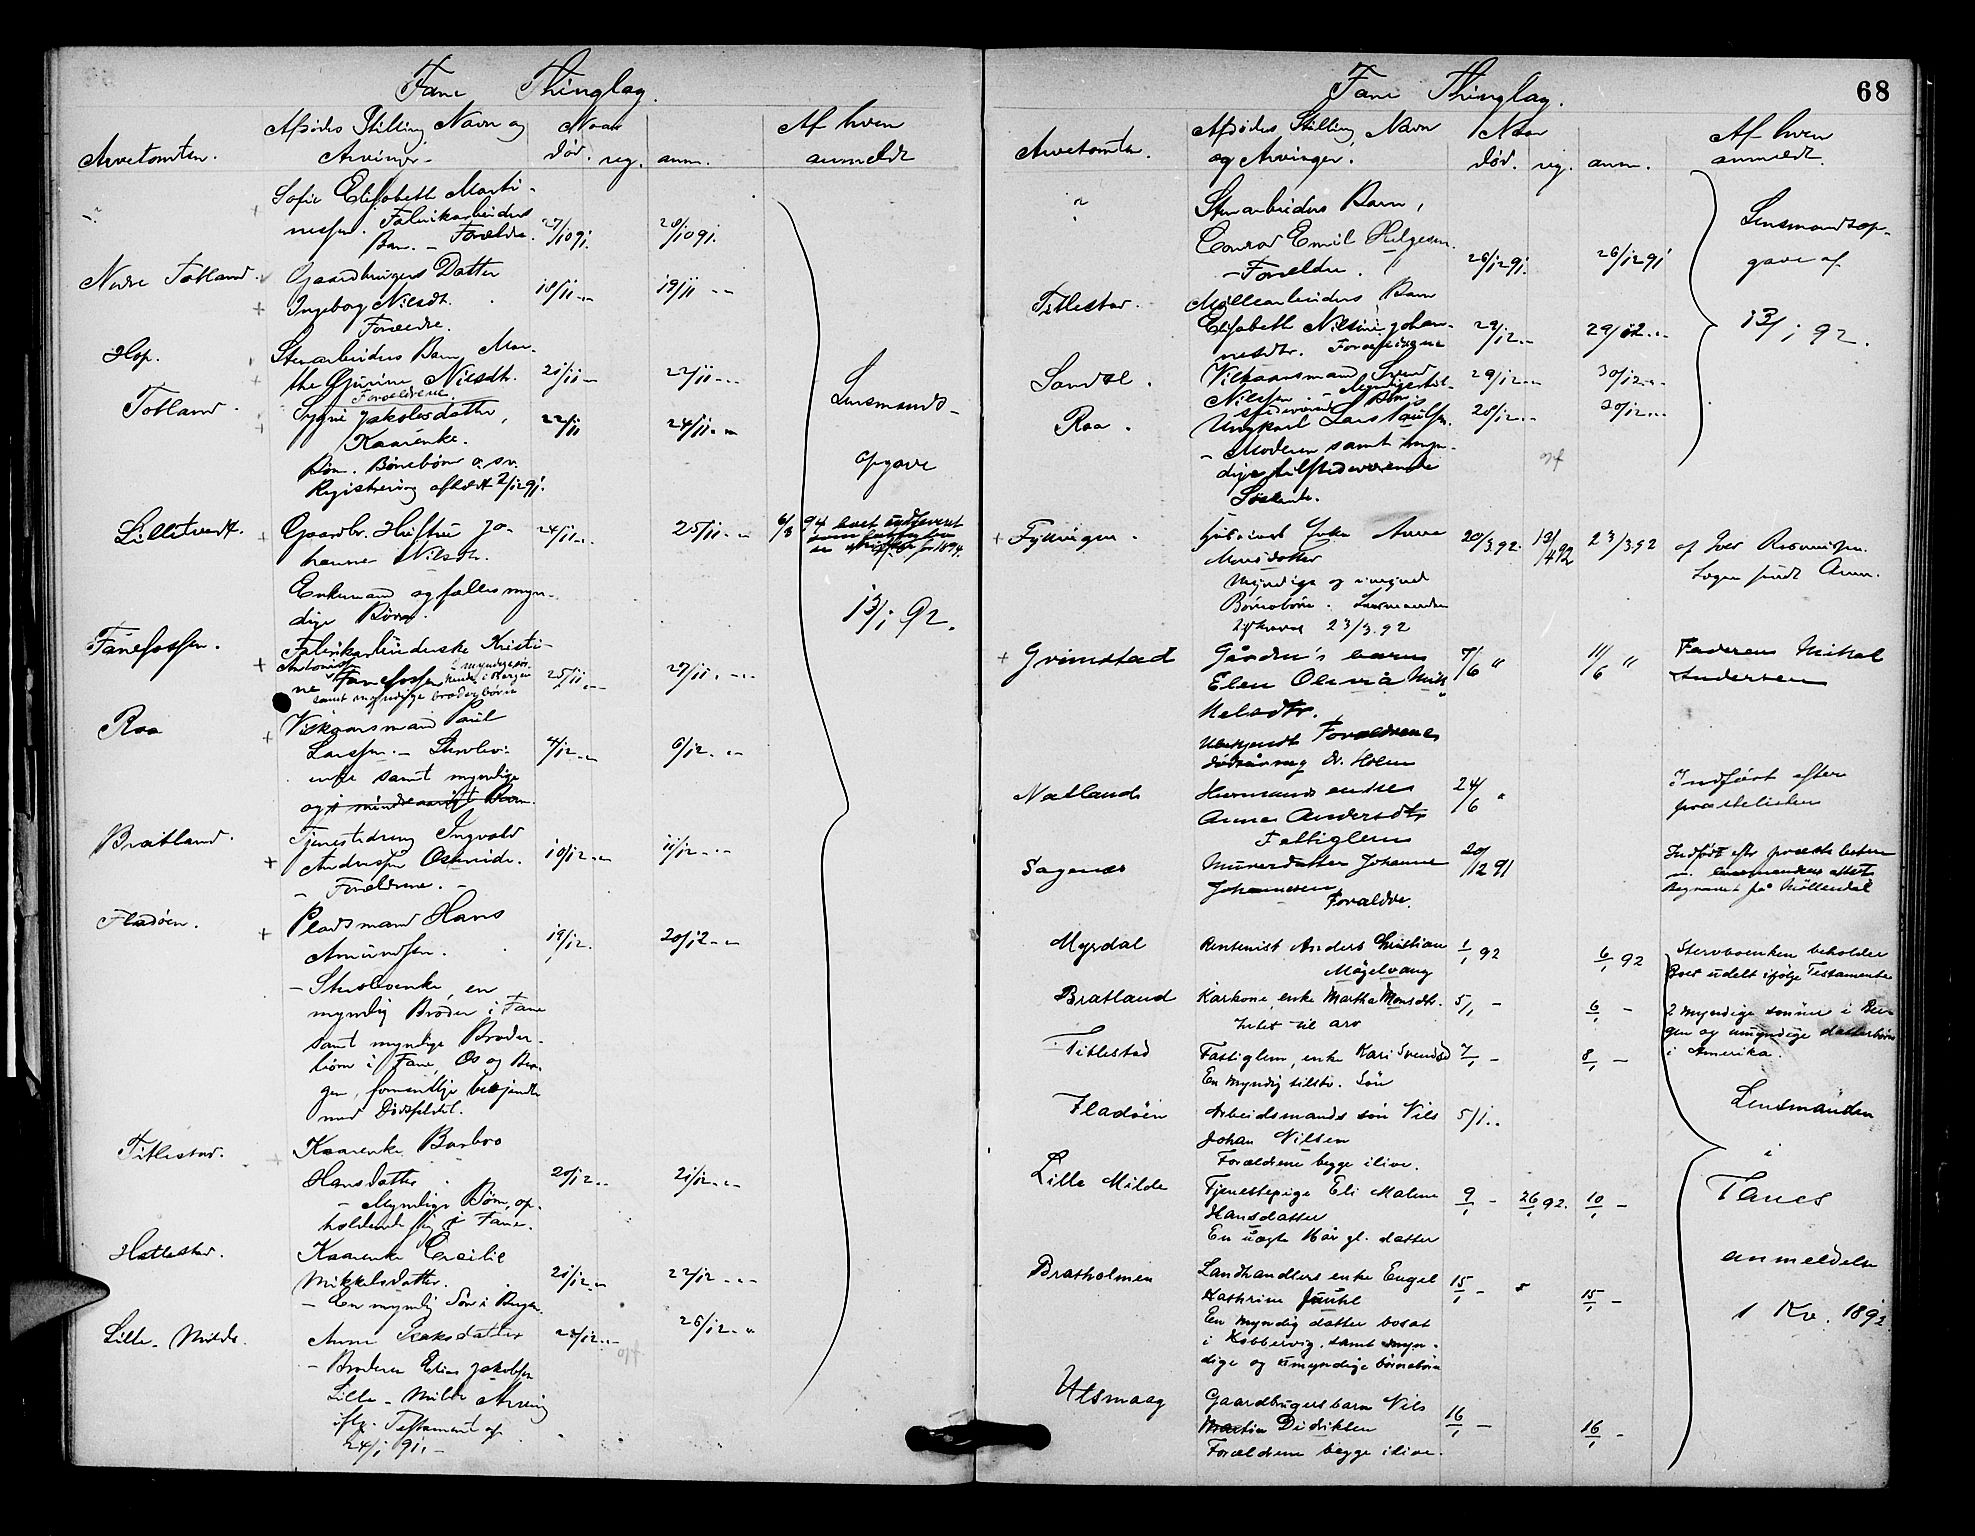 Fane Thinglag.
Arvetomten.
Afdødes Stilling, Navn og
Arvinge
Naar
død.
reg.
anm.
Af hvem
anmeldt
Sofie Elisabeth Marti-
nessen. Fabrikarbeiders
Barn. – Forældre.
27/10 91.
28/10 91.
Nedre Totland.
Gaardbrugers Datter
Ingeborg Nilsdt.
Forældre.
18/11 –
19/11 –
Hop.
Stenarbeiders Barn Mar-
the Gurine Nilsdt.
Forældrene
21/11 –
22/11 –
Totland.
Sygni Jakobsdatter,
Kaarenke.
Børn. Børnebørn o. sv.
Registrering afholdt 2/12 91.
22/11
24/11 –
Lensmands-
opgave
13/1 92.
Lilletvedt.
Gaardbr. Hustru Jo-
hanne Nilsdt.
Enkemand og fælles myn-
dige Børn.
24/11 –
25/11 –
6/3 94 boet udleveret
Fanefossen.
Fabrikarbeiderske Kristi-
ne Antonisd. Fanefossen
samt myndige broderbørn
25/11 –
27/11 –
Raa
Vilkaarsmand Paul
Larssen. –
enke samt myndige
og 1 mindreaarigt Barn.
4/12 –
6/12 –
Bratland.
Tjenestedreng Ingvald
Anderssen
– Forældrene. –
10/12 –
11/12 –
Fladøen.
Pladsmand Hans
Amundsen.
– Stervboenke, en
myndig Broder i Fane
samt myndige Broder-
børn i Fane, Os og Ber-
gen, fornentlige bekjendte
med Dødsfaldet.
19/12.
20/12 –
Titlestad.
Kaarenke Barbro
Hansdatter
– Myndige Børn, op-
holdende sig i Fane.
20/12 –
21/12 –
Hatlestad.
Kaarenke Cecilie
Mikkelsdatter.
– En myndig Søn i Bergen.
21/12 –
22/12 –
Lille-Milde.
Anne Isaksdatter
– Broderen Elias Jakobsen
Lille-Milde Arving
iflg. Testament af
24/1 91. –
24/12 –
26/12 –
Fane Thinglag.
68
Arvetomten.
Afdødes Stilling, Navn
og Arvinger.
Naar
død.
reg.
anm.
Af hvem
anmeldt.
Stenarbeiders Barn,
Conrad Emil Helgesen.
– Forældre.
26/12 91.
26/12 91
Lensmandsop-
gave af
13/1 92.
Titlestad.
Møllearbeiders Barn
Elisabeth Nilsine Johan-
nesdtr. Forældrene
29/12 –
29/12 –
Sandal.
Vilkaarsmand Svend
Nilssen. – Myndige til-
stedeværende Børn
29/12 –
30/12 –
Raa.
Ungkarl Lars Paulsen.
– Moderen samt myn-
dige tilstedeværende
Søskende.
28/12 –
30/12 –
Fyllingen.
Enke Anne
Monsdatter
Myndige og umynd.
Børnebørn. Lensmanden
23/3.92
20/3.92.
13/4 92
23/3.92
af Iver Rasmussen.
Grimstad
Gårdm's barn
Elen Olina Mik-
kelsdtr.
Ubekjendt Forældrene
dødsårsag Dr. Holm
7/6 "
11/6 "
Faderen Mikal
Andersen
Natland
Husmands enke
Anna Andersdtr
Fattiglem
24/6 "
Indført efter
prestelisten
Sagenæs
Murerdatter Johanne
Johannesen
Forældre.
20/12 91
Indført eftr præstelisten
Begravet på Møllendal
Myrdal
Rentenist Anders Christian
Mågelvang
1/1 92
6/1 92
Stervboenken beholder
Boet udelt ifølge Testamente
Bratland
Kårkone, enke Martha Monsdtr.
Intet til arv
5/1 –
6/1 –
2 myndige sønner i Ber-
gen og umyndige datterbørn
i Amerika.
Titlestad
Fattiglem, enke Kari Svendsd
En myndig tilstr. Søn
7/1 –
8/1 –
Fladøen
Arbeidsmands søn Nils
Johan Nilsen
Forældrene begge ilive.
5/1 –
Lensmanden
i
Fanes
anmeldelse
1 Kv. 1892.
Lille Milde
Tjenestepige Eli Malene
Hansdatter
En uægte 16år gl. datter
9/1 –
26/1 92.
10/1 –
Bratholmen
Landhandlers enke Engel
Kathrine Juuhl
En myndig datter bosat
i Kobbervig, samt myn-
dige og umyndige børnebørn
15/1 –
15/1 –
Ulsmaag
Gaardbrugerbarn Nils
Martin Didriksen
Forældrene begge ilive.
16/1 –
16/1 –